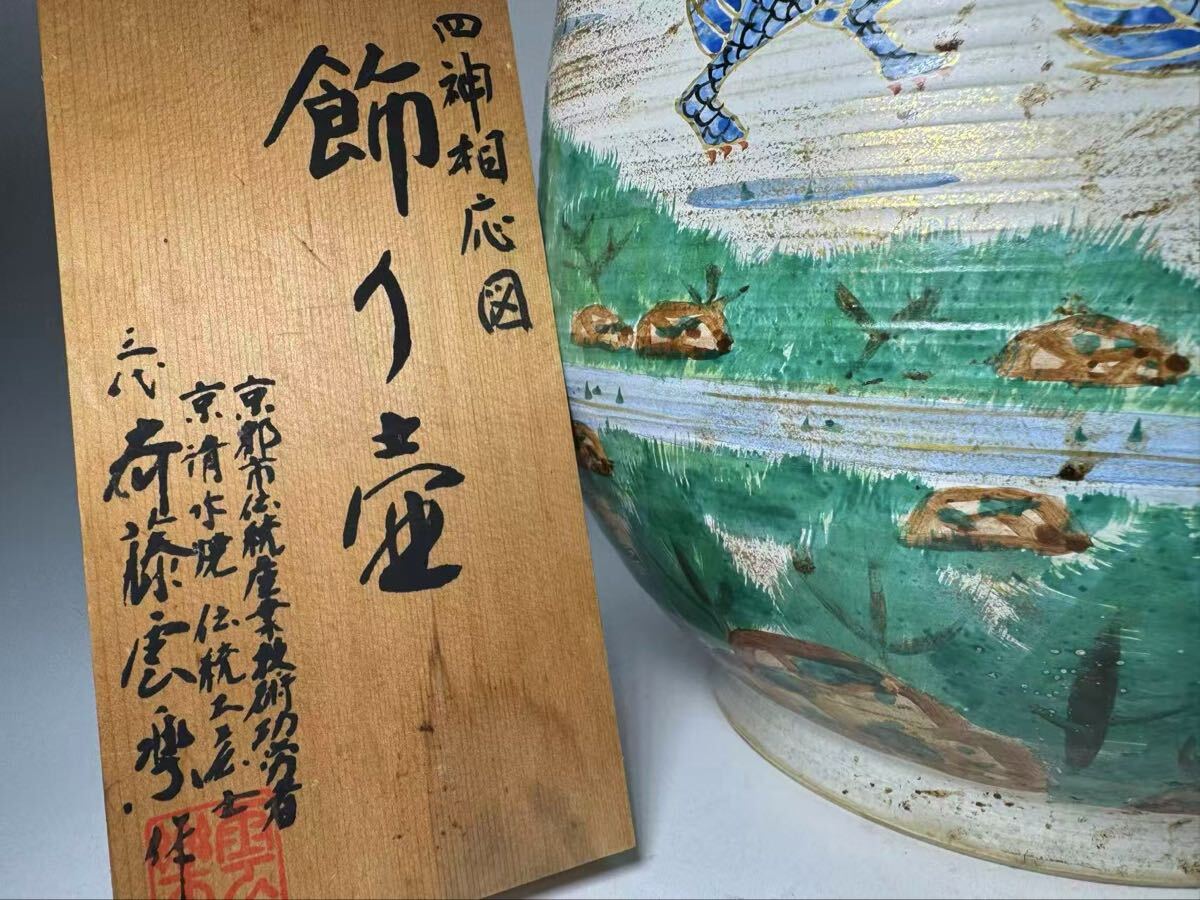 四神相応図
飾り壷
京都市伝統産業技術功労者
京清水焼 伝統工芸士
三代 斉藤雲彎 作